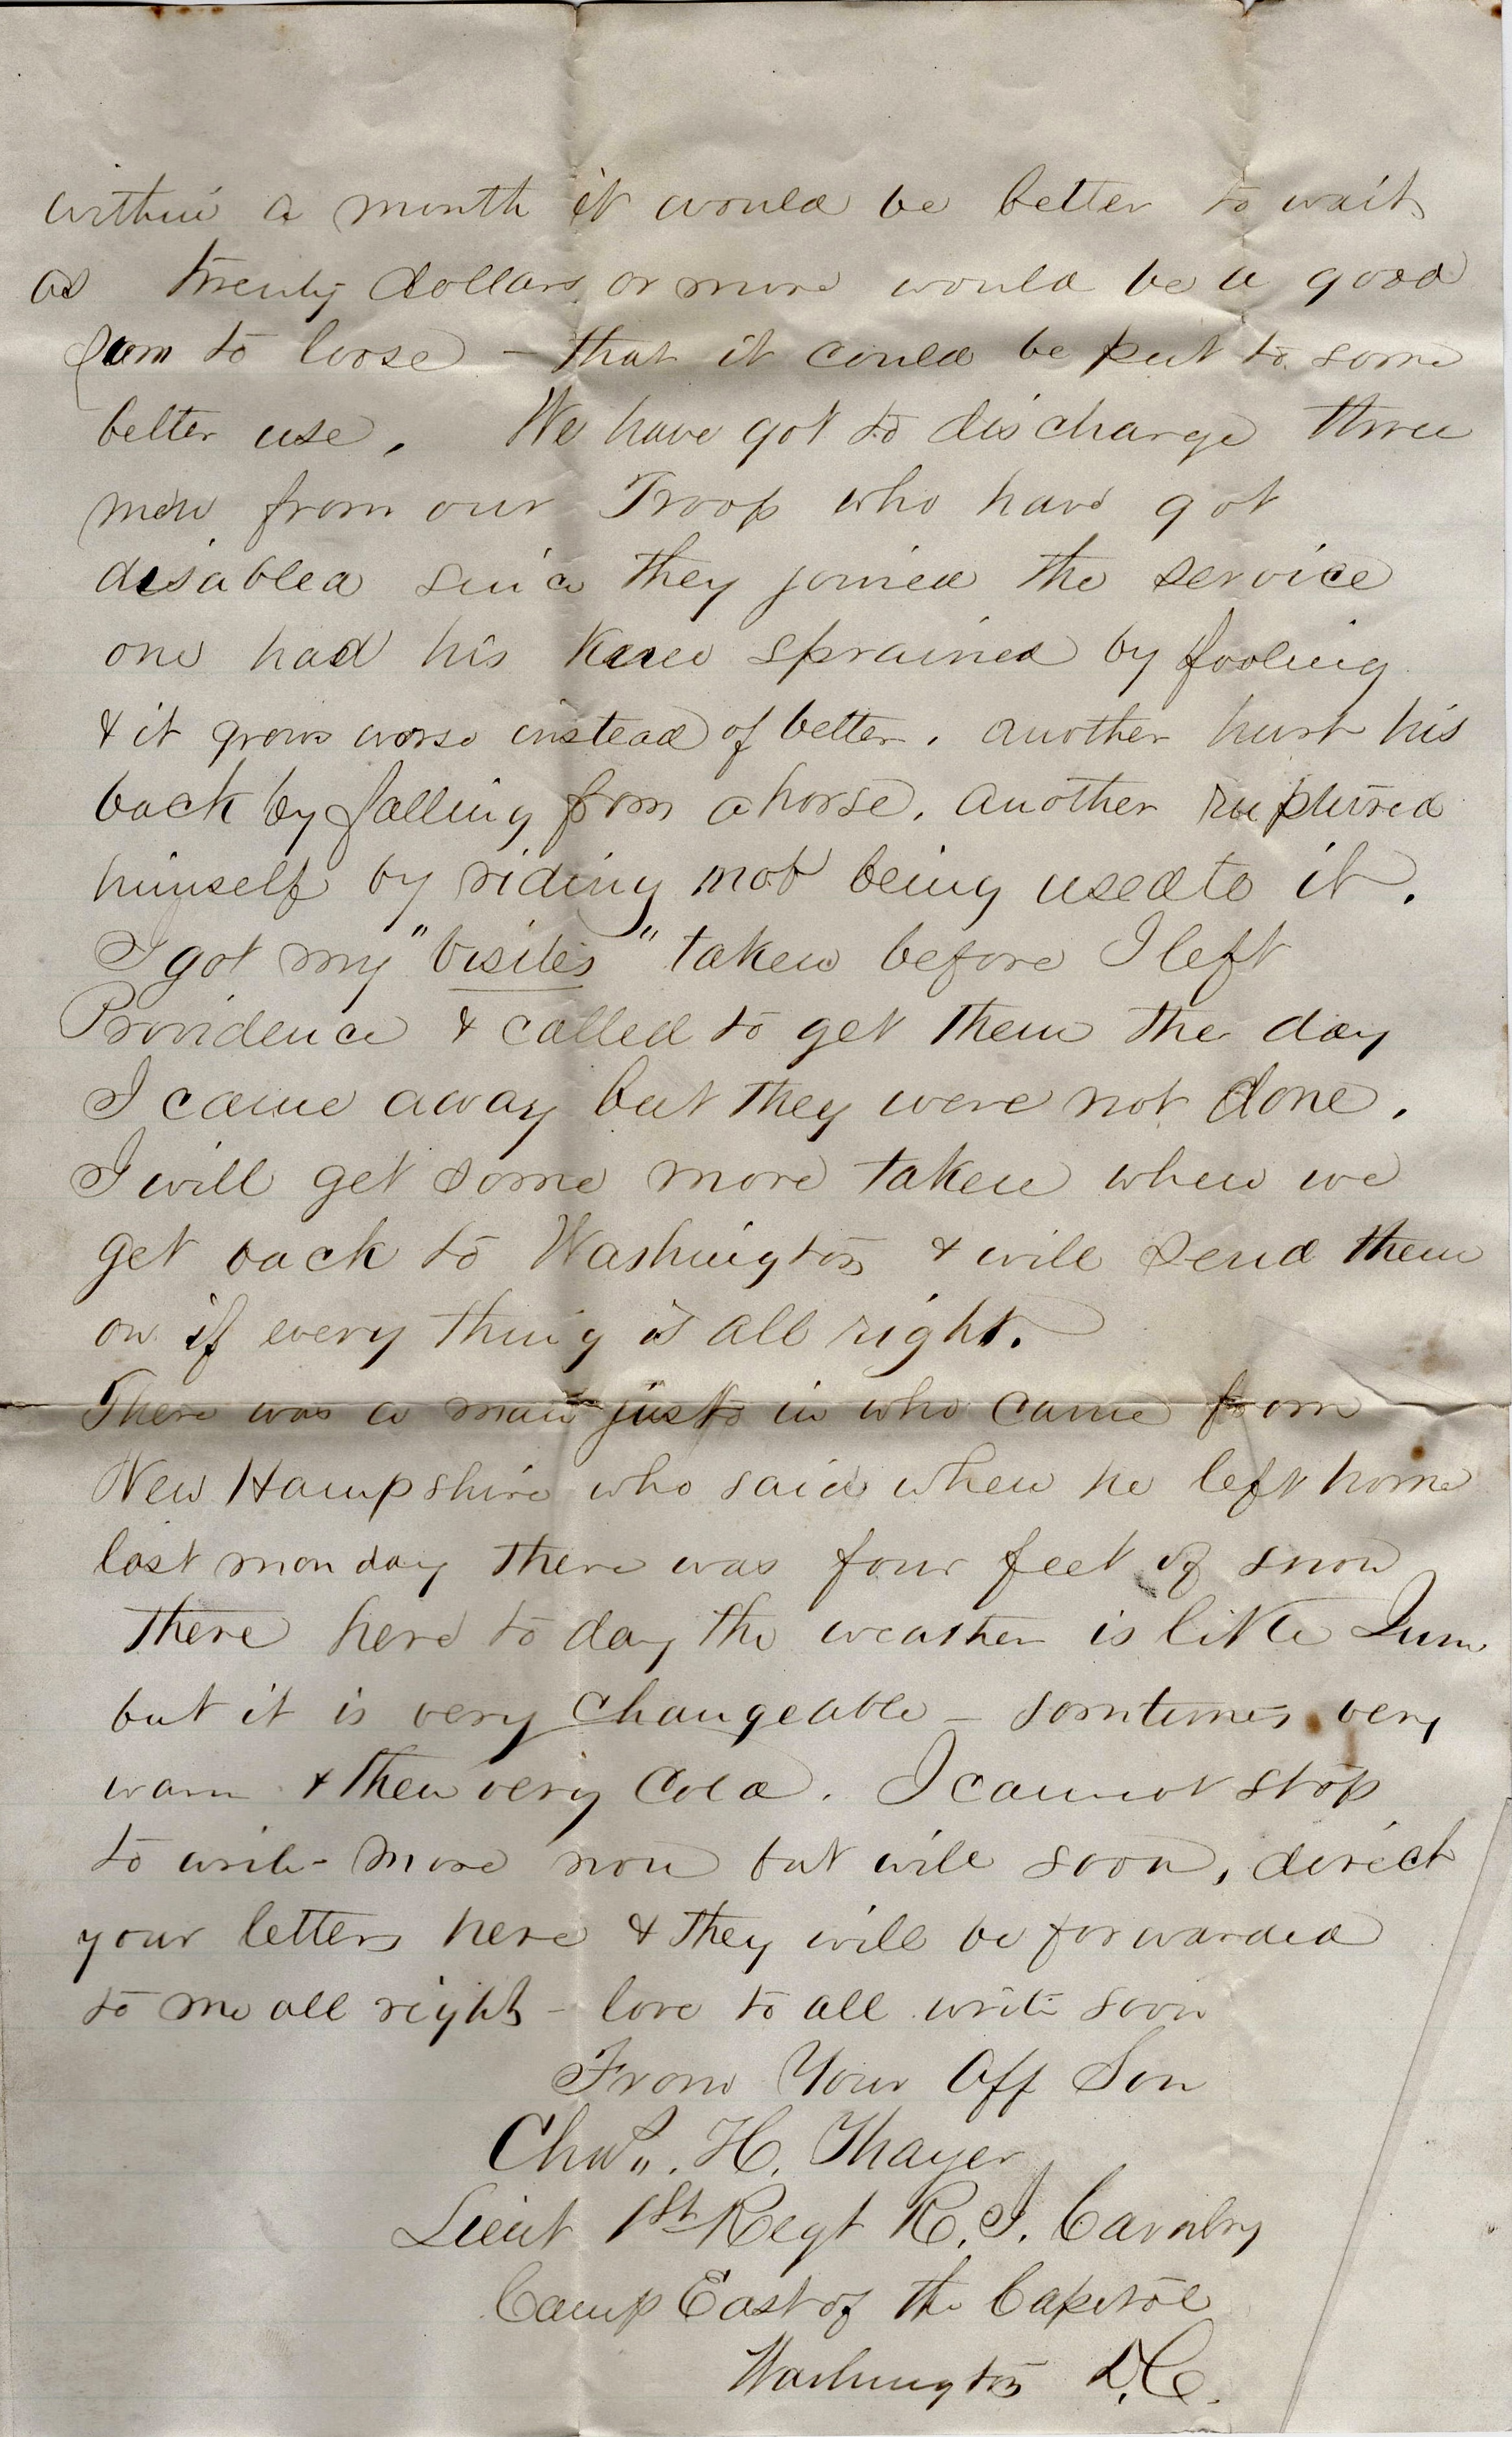 within a month it would be better to wait
as twenty dollars or more would be a good
sum to loose - that it could be put to some
better use, We have got to discharge three
men from our Troop who have got
disabled since they joined the service
one had his knee sprained by fooling
& it grows worse instead of better, another hurt his
back by falling from a horse, another ruptured
himself by riding not being used to it.
I got my "visites" taken before I left
Providence & called to get them the day
I came away but they were not done.
I will get some more taken when we
get back to Washington & will send them
on if every thing is all right.
There was a man just in who came from
New Hampshire who said when he left home
last monday there was four feet of snow
there here to day the weather is like June
but it is very changeable - somtimes very
warm & then very cold. I cannot stop
to write more now but will soon, direct
your letters here & they will be forwarded
to me all right - love to all write soon
From Your Aff Son
Chas. H. Thayer
Lieut 1st Regt R. I. Cavalry
Camp East of the Capitol
Washington D.C.